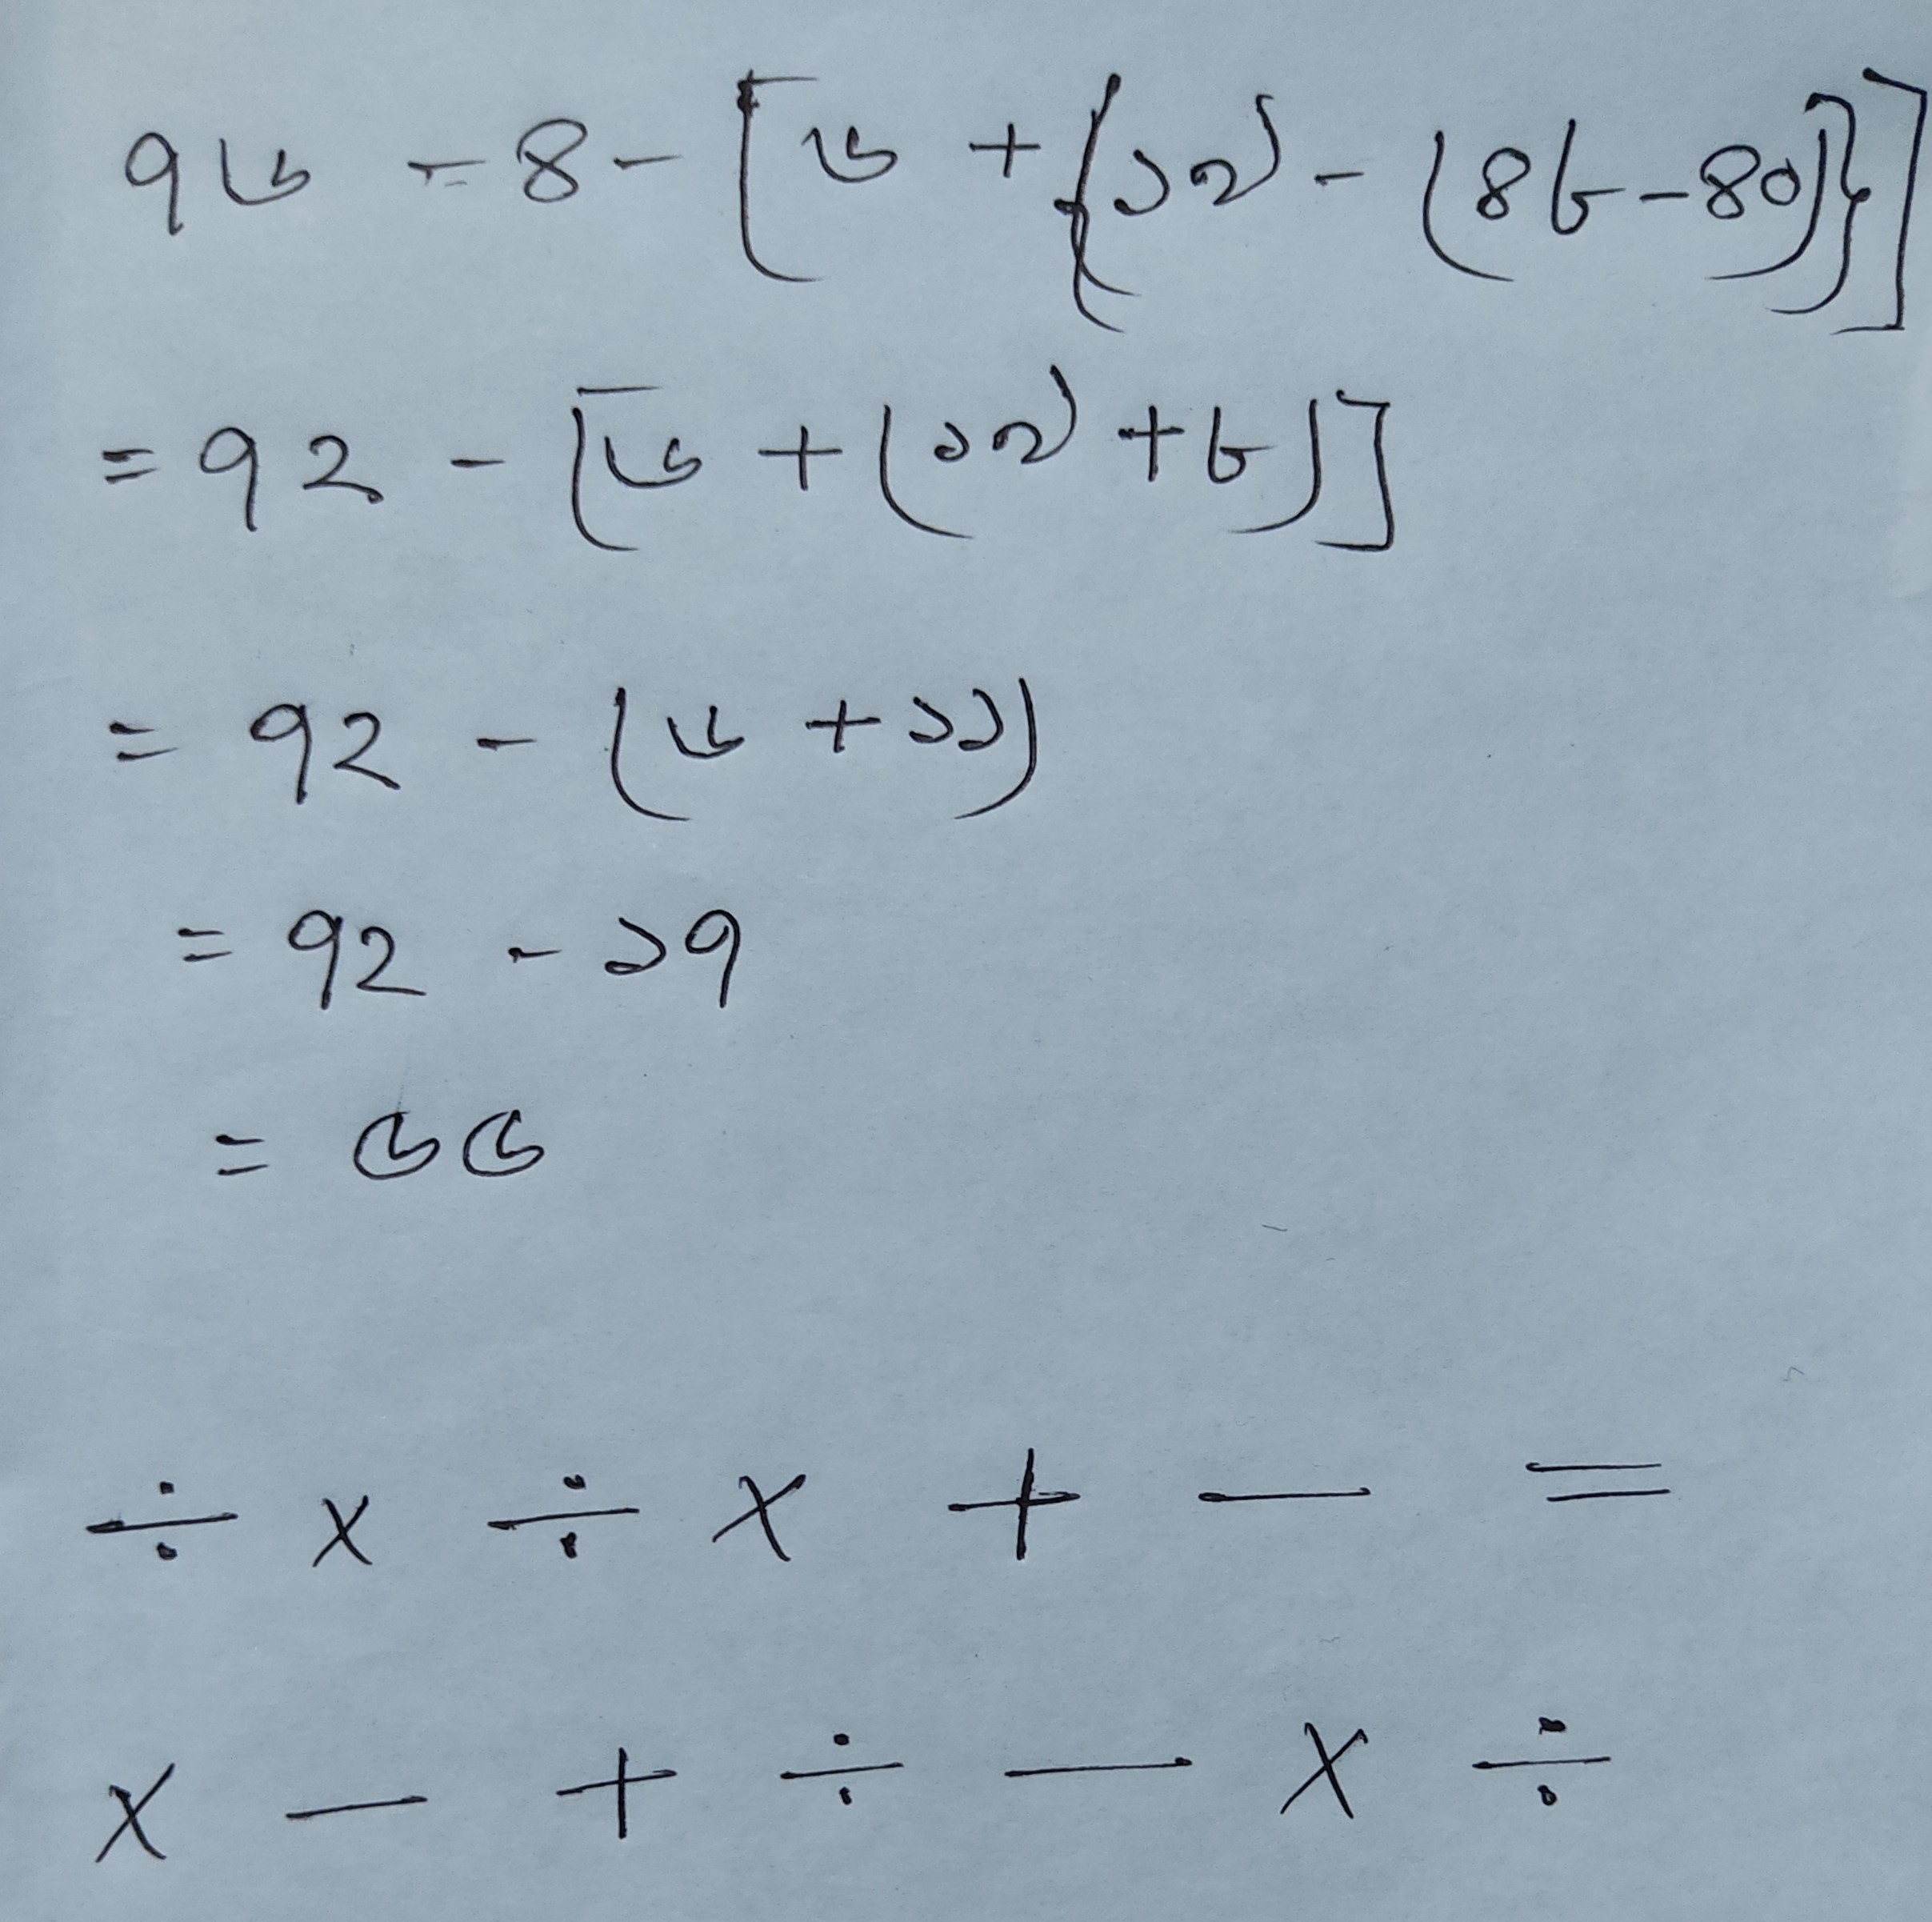 ৭৬ - ৪ - [৬ + {১৯ - (৪৮-৪০)}]
= ৭২ - [৬ + (১৯ + ৮)]
= ৭২ - (৬ + ১১)
= ৭২ - ১৭
= ৫৫
÷ × ÷ × + - =
× - + ÷ - × ÷